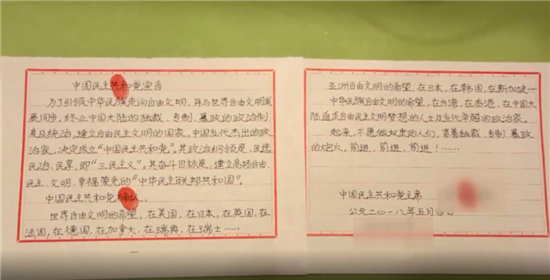 中国民主共和党宣言
为了引领中华民族走向自由文明，并与世界自由文明发
展同步，终止中国大陆的独裁、专制、暴政的政治制
度及统治，建立自由民主文明的国家。中国当代杰出的政治
家，决定成立“中国民主共和党”。其政治纲领是，民德
民治、民享，即“三民主义”。其奋斗目标是，建立高扬自由、
民主、文明、幸福荣光的“中华民主联邦共和国”。
中国民主共和党
世界自由文明的希望，在美国，在日本，在英国，在
法国，在德国，在加拿大，在瑞典，在瑞士……
亚洲自由文明的希望，在日本，在韩国，在新加坡……
中华民族自由文明的希望，在台湾，在香港，在中国大
陆追求自由民主文明梦想的人士及当代卓越的政治家。
起来，不愿做奴隶的人们，冒着独裁、专制、暴政
的炮火，前进，前进，前进！……
中国民主共和党主席
公元二〇一八年五月